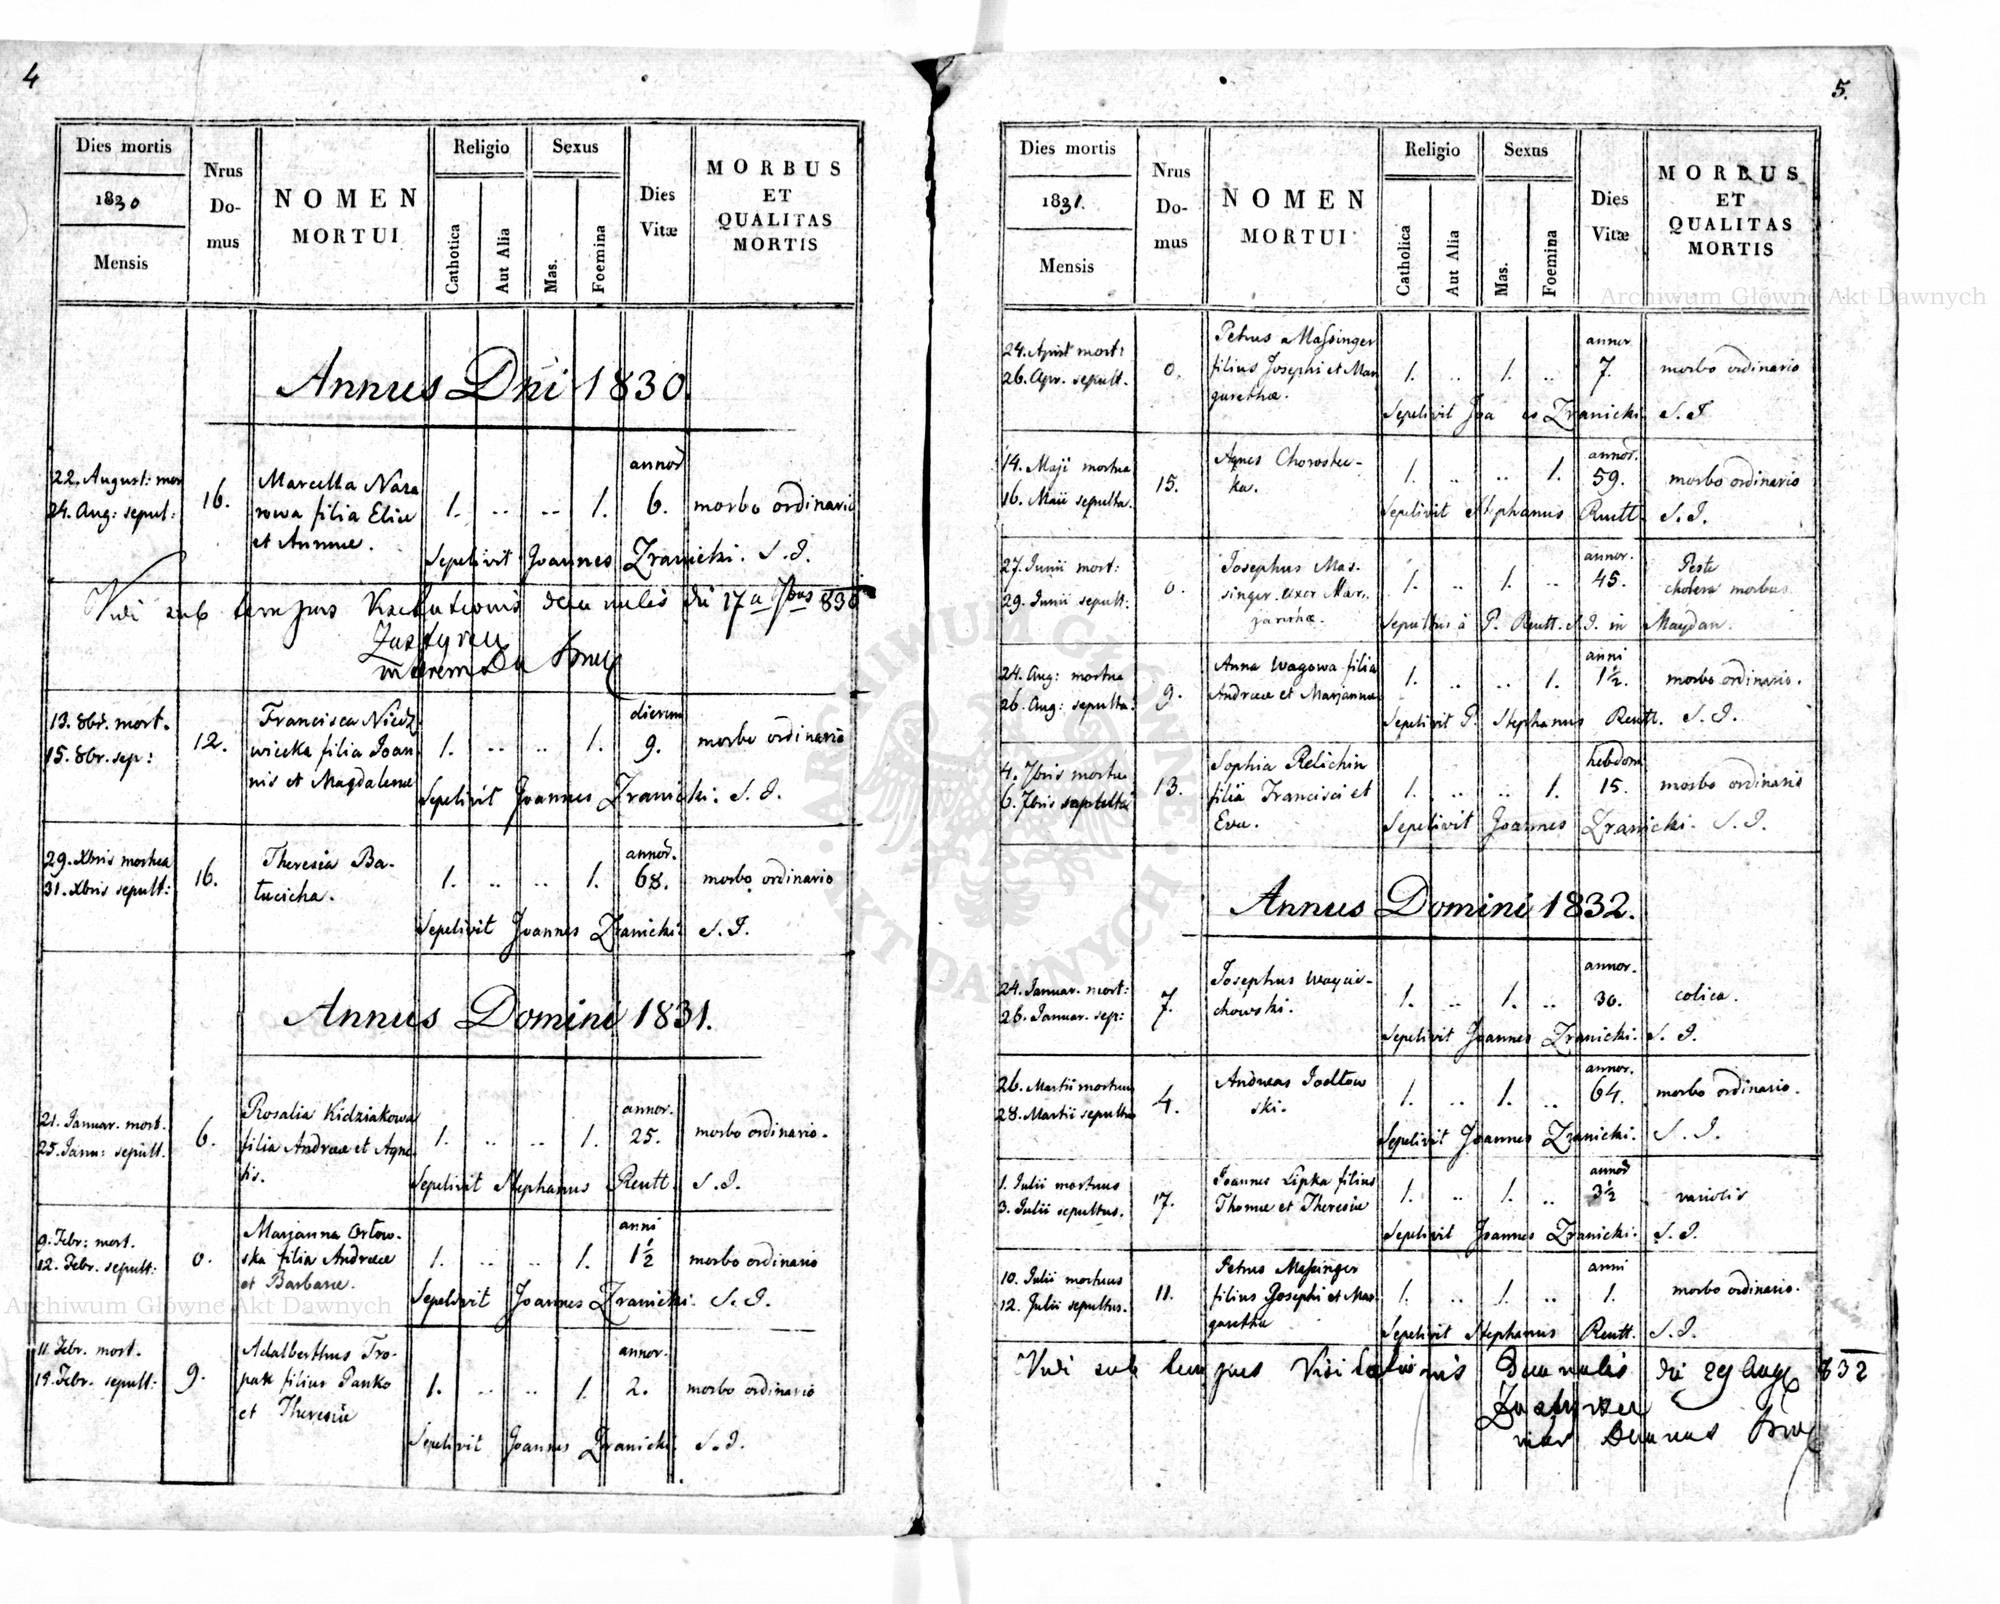 4
Dies mortis
1830
Mensis
Nrus
Do-
mus
NOMEN
MORTUI
Religio
Catholica
Aut Alia
Sexus
Mas.
Foemina
Dies
Vitæ
MORBUS
ET
QUALITAS
MORTIS
Annus Dni 1830.
22. August: mor
24. Aug: sepul:
16.
Marcella Nara
rowa filia Eliæ
et Annæ.
1. .. .. 1.
annor
6.
morbo ordinario
Sepelivit Joannes Zranicki. S. J.
Vidi sub tempus decanalis die 17a 7bris 830
13. 8br. mort.
15. 8br. sep:
12.
Francisca Niedz
wiecka filia Joan
nis et Magdalenæ
1. .. .. 1.
dierum
9.
morbo ordinario
Sepelivit Joannes Zranicki. S. J.
29. Xbris mortua
31. Xbris sepult:
16.
Theresia Ba-
tucicha.
1. .. .. 1.
annor.
68.
morbo ordinario
Sepelivit Joannes Zranicki. S. J.
Annus Domini 1831.
21. Januar. mort.
25. Janu: sepult.
6.
Rosalia Kidziakowa
filia Andreæ et Agne
tis.
1. .. .. 1.
annor.
25.
morbo ordinario.
Sepelivit Stephanus Reutt. S. J.
9. Febr: mort.
12. Febr. sepult:
0.
Marjanna Orlow-
ska filia Andreæ
et Barbaræ.
1. .. .. 1.
anni
1½
morbo ordinario
Sepelivit Joannes Zranicki. S. J.
11. Febr. mort.
15. Febr. sepult:
9.
Adalberthus Tro-
pak filius Panko
et Theresiæ
1. .. .. 1.
annor.
2.
morbo ordinario
Sepelivit Joannes Zranicki. S. J.
5.
Dies mortis
1831.
Mensis
Nrus
Do-
mus
NOMEN
MORTUI
Religio
Catholica
Aut Alia
Sexus
Mas.
Foemina
Dies
Vitæ
MORBUS
ET
QUALITAS
MORTIS
24. April mort:
26. Apr. sepult.
0.
Petrus a Massinger
filius Josephi et Mar
garethæ.
1. .. 1. ..
annor.
7.
morbo ordinario
Sepelivit Joa es Zranicki. S. J.
14. Maji mortua
16. Maii sepulta.
15.
Agnes Chorostec-
ka.
1. .. .. 1.
annor.
59.
morbo ordinario
Sepelivit Stephanus Reutt. S. J.
27. Junii mort:
29. Junii sepult:
0.
Josephus Mas-
singer. uxor Mar-
1. .. 1. ..
annor.
45.
Peste
cholera morbus.
Sepultus à P. Reutt. S. J. in Maydan.
24. Aug: mortua
26. Aug: sepulta.
9.
Anna Wagowa filia
Andreæ et Marjannæ
1. .. .. 1.
anni
1½.
morbo ordinario.
Sepelivit P. Stephanus Reutt. S. J.
4. 7bris mortua
6. 7bris sepulta
13.
Sophia Relichin
filia Francisci et
Evæ.
1. .. .. 1.
hebdom
15.
morbo ordinario
Sepelivit Joannes Zranicki. S. J.
Annus Domini 1832.
24. Januar. mort:
26. Januar. sep:
7.
Josephus Waycie-
chowski.
1. .. 1. ..
annor.
30.
colica.
Sepelivit Joannes Zranicki. S. J.
26. Martii mortuus
28. Martii sepultus
4.
Andreas Jodlow
ski.
1. .. 1. ..
annor.
64.
morbo ordinario.
Sepelivit Joannes Zranicki. S. J.
1. Julii mortuus
3. Julii sepultus.
17.
Joannes Lipka filius
Thomæ et Theresiæ
1. .. 1. ..
annor
3½
variolis
Sepelivit Joannes Zranicki. S. J.
10. Julii mortuus
12. Julii sepultus.
11.
Petrus Massinger
filius Josephi et Mar
garethæ
1. .. 1. ..
anni
1.
morbo ordinario.
Sepelivit Stephanus Reutt. S. J.
Vidi sub tempus Visitationis Decanalis die 29 Aug 832
Archiwum Główne Akt Dawnych
Archiwum Główne Akt Dawnych
ARCHIWUM GŁÓWNE AKT DAWNYCH